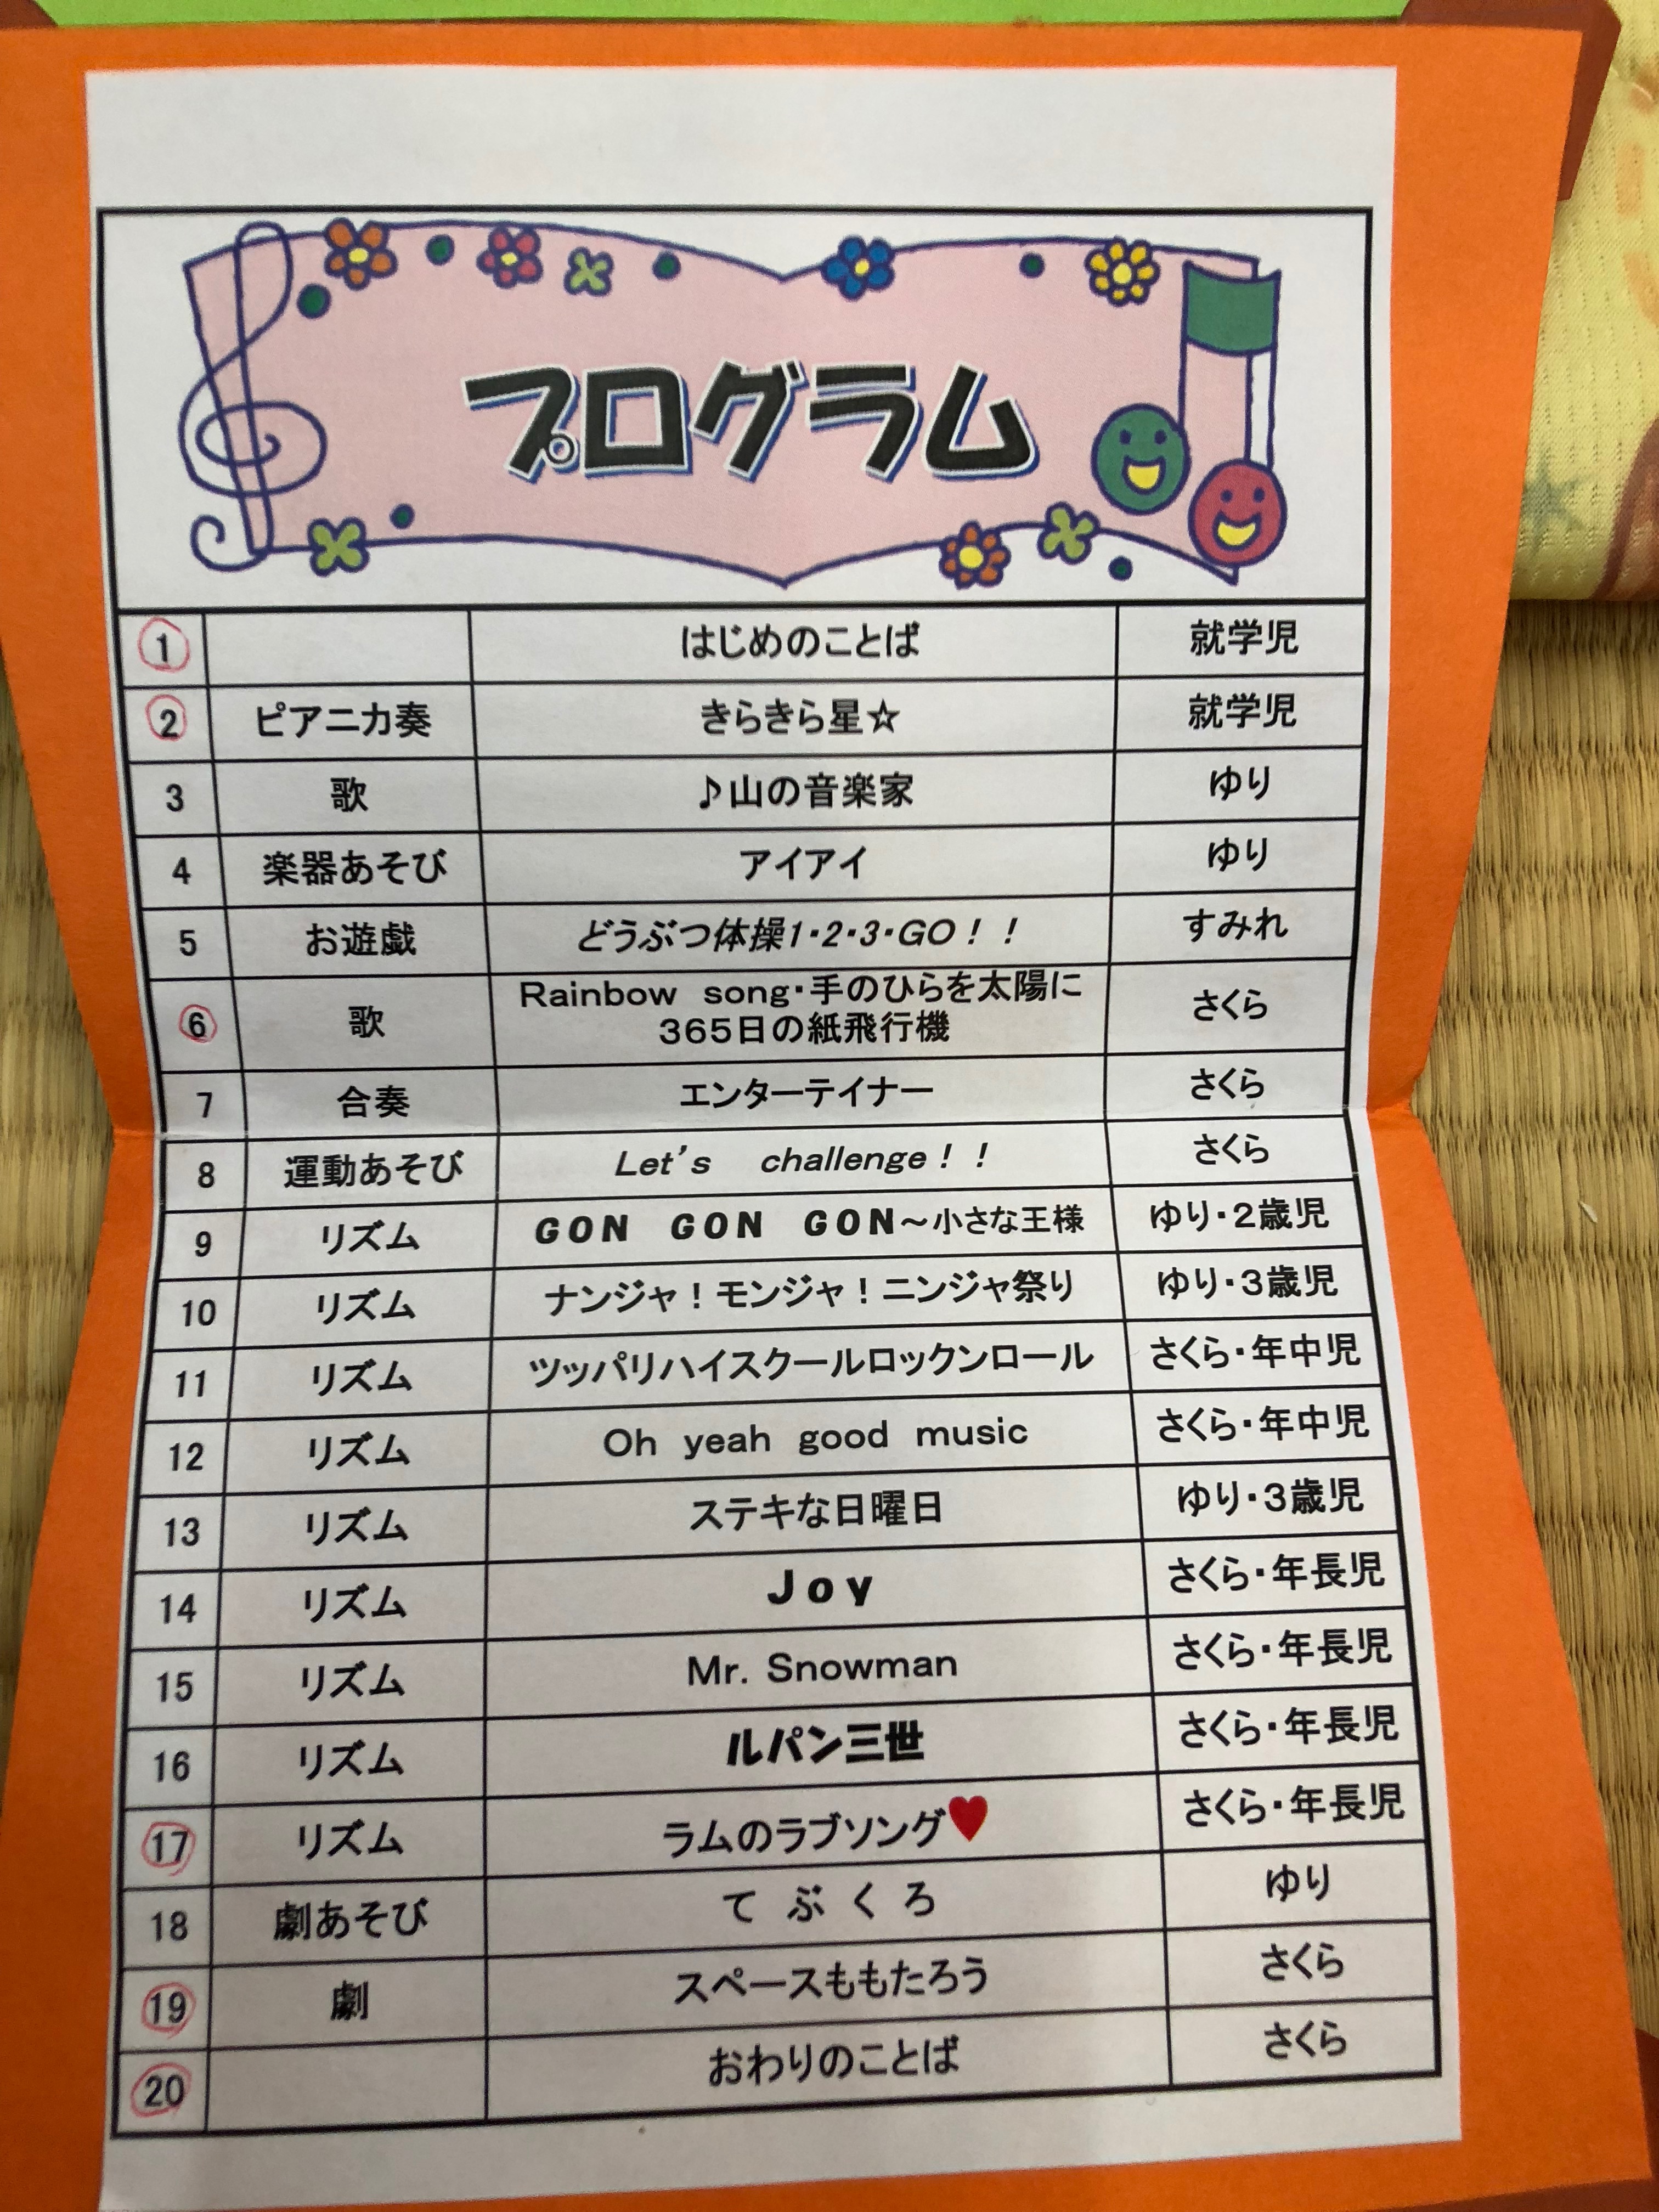 プログラム
1 はじめのことば 就学児
2 ピアニカ奏 きらきら星☆ 就学児
3 歌 ♪山の音楽家 ゆり
4 楽器あそび アイアイ ゆり
5 お遊戯 どうぶつ体操1・2・3・GO！！ すみれ
6 歌 Rainbow song・手のひらを太陽に
365日の紙飛行機 さくら
7 合奏 エンターテイナー さくら
8 運動あそび Let's challenge！！ さくら
9 リズム GON GON GON～小さな王様 ゆり・2歳児
10 リズム ナンジャ！モンジャ！ニンジャ祭り ゆり・3歳児
11 リズム ツッパリハイスクールロックンロール さくら・年中児
12 リズム Oh yeah good music さくら・年中児
13 リズム ステキな日曜日 ゆり・3歳児
14 リズム Joy さくら・年長児
15 リズム Mr. Snowman さくら・年長児
16 リズム ルパン三世 さくら・年長児
17 リズム ラムのラブソング♥ さくら・年長児
18 劇あそび てぶくろ ゆり
19 劇 スペースももたろう さくら
20 おわりのことば さくら